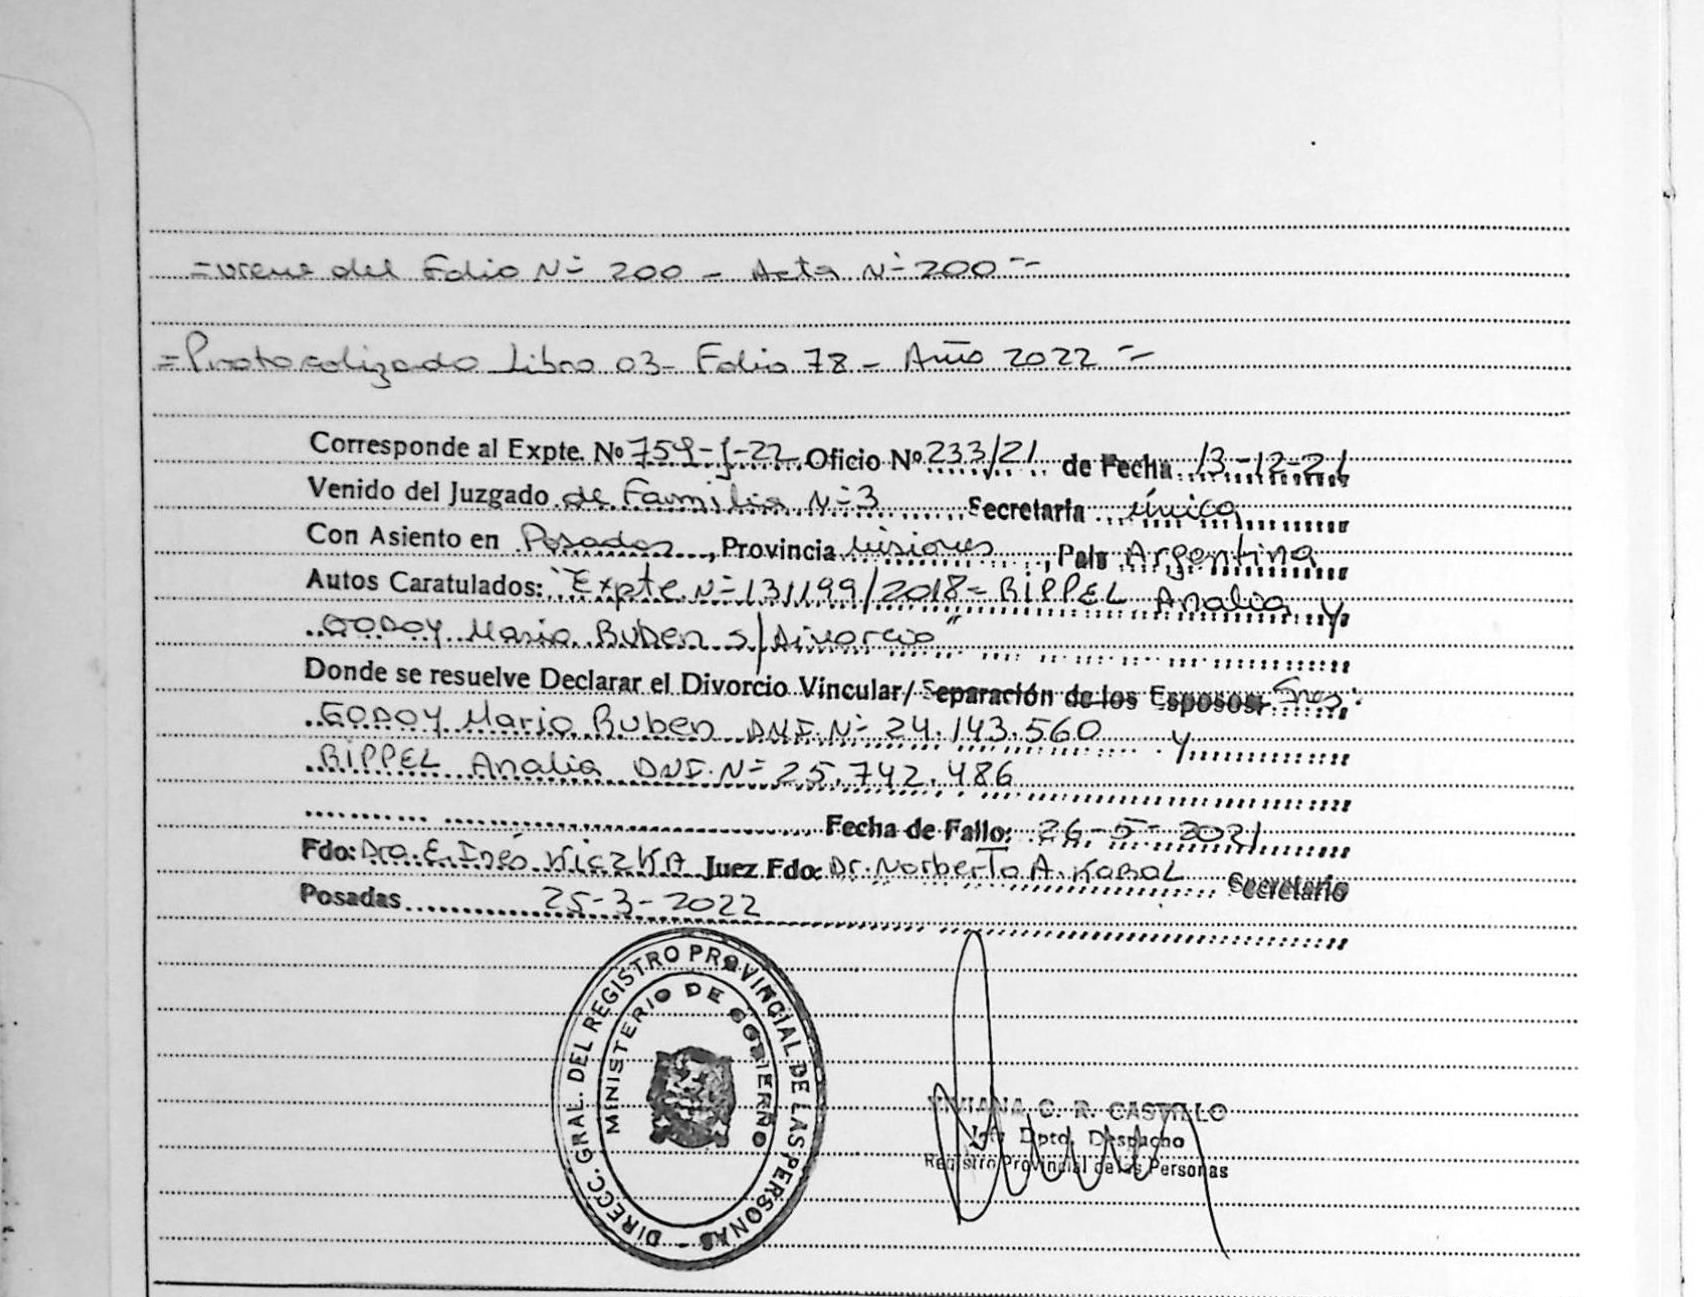 =verso del Folio Nº 200 - Acta Nº 200 =
=Protocolizado Libro 03- Folio 78 - Año 2022 =
Corresponde al Expte. Nº 759-J-22 Oficio Nº 233/21 de Fecha 13-12-21
Venido del Juzgado de Familia Nº3 Secretaria única
Con Asiento en Posadas, Provincia Misiones, País Argentina
Autos Caratulados: "Expte Nº 131199/2018- RIPPEL Analia y
GODOY Mario Ruben s/Divorcio"
Donde se resuelve Declarar el Divorcio Vincular/ Separación de los Esposos: Sres:
GODOY Mario Ruben DNI.Nº 24.143.560 y
RIPPEL Analia DNI.Nº 25.742.486
Fecha de Fallo: 26-5-2021
Fdo: Dra. E. Inés KICZKA Juez Fdo: Dr. Norberto A. KABAL Secretario
Posadas 25-3-2022
DIRECC. GRAL. DEL REGISTRO PROVINCIAL DE LAS PERSONAS -
MINISTERIO DE GOBIERNO
VIVIANA C. R. CASTILLO
Jefe Dpto. Despacho
Registro Provincial de las Personas